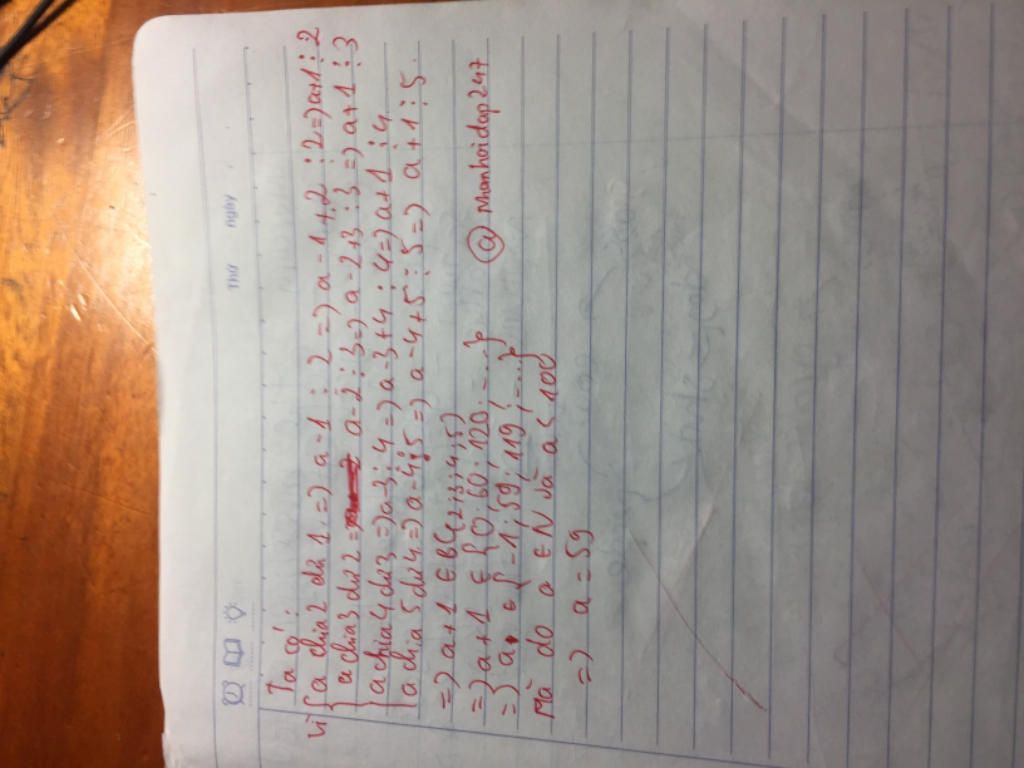 Thứ Ngày
Ta có:
Vì a chia 2 dư 1 => a-1 ⋮ 2 => a-1+2 ⋮ 2 => a+1 ⋮ 2
a chia 3 dư 2 => a-2 ⋮ 3 => a-2+3 ⋮ 3 => a+1 ⋮ 3
a chia 4 dư 3 => a-3 ⋮ 4 => a-3+4 ⋮ 4 => a+1 ⋮ 4
a chia 5 dư 4 => a-4 ⋮ 5 => a-4+5 ⋮ 5 => a+1 ⋮ 5.
=> a+1 ∈ BC(2;3;4;5)
=> a+1 ∈ {0;60;120;...}
@ Nhanhoidap247
=> a ∈ {-1;59;119;...}
Mà do a ∈ N và a < 100
=> a = 59